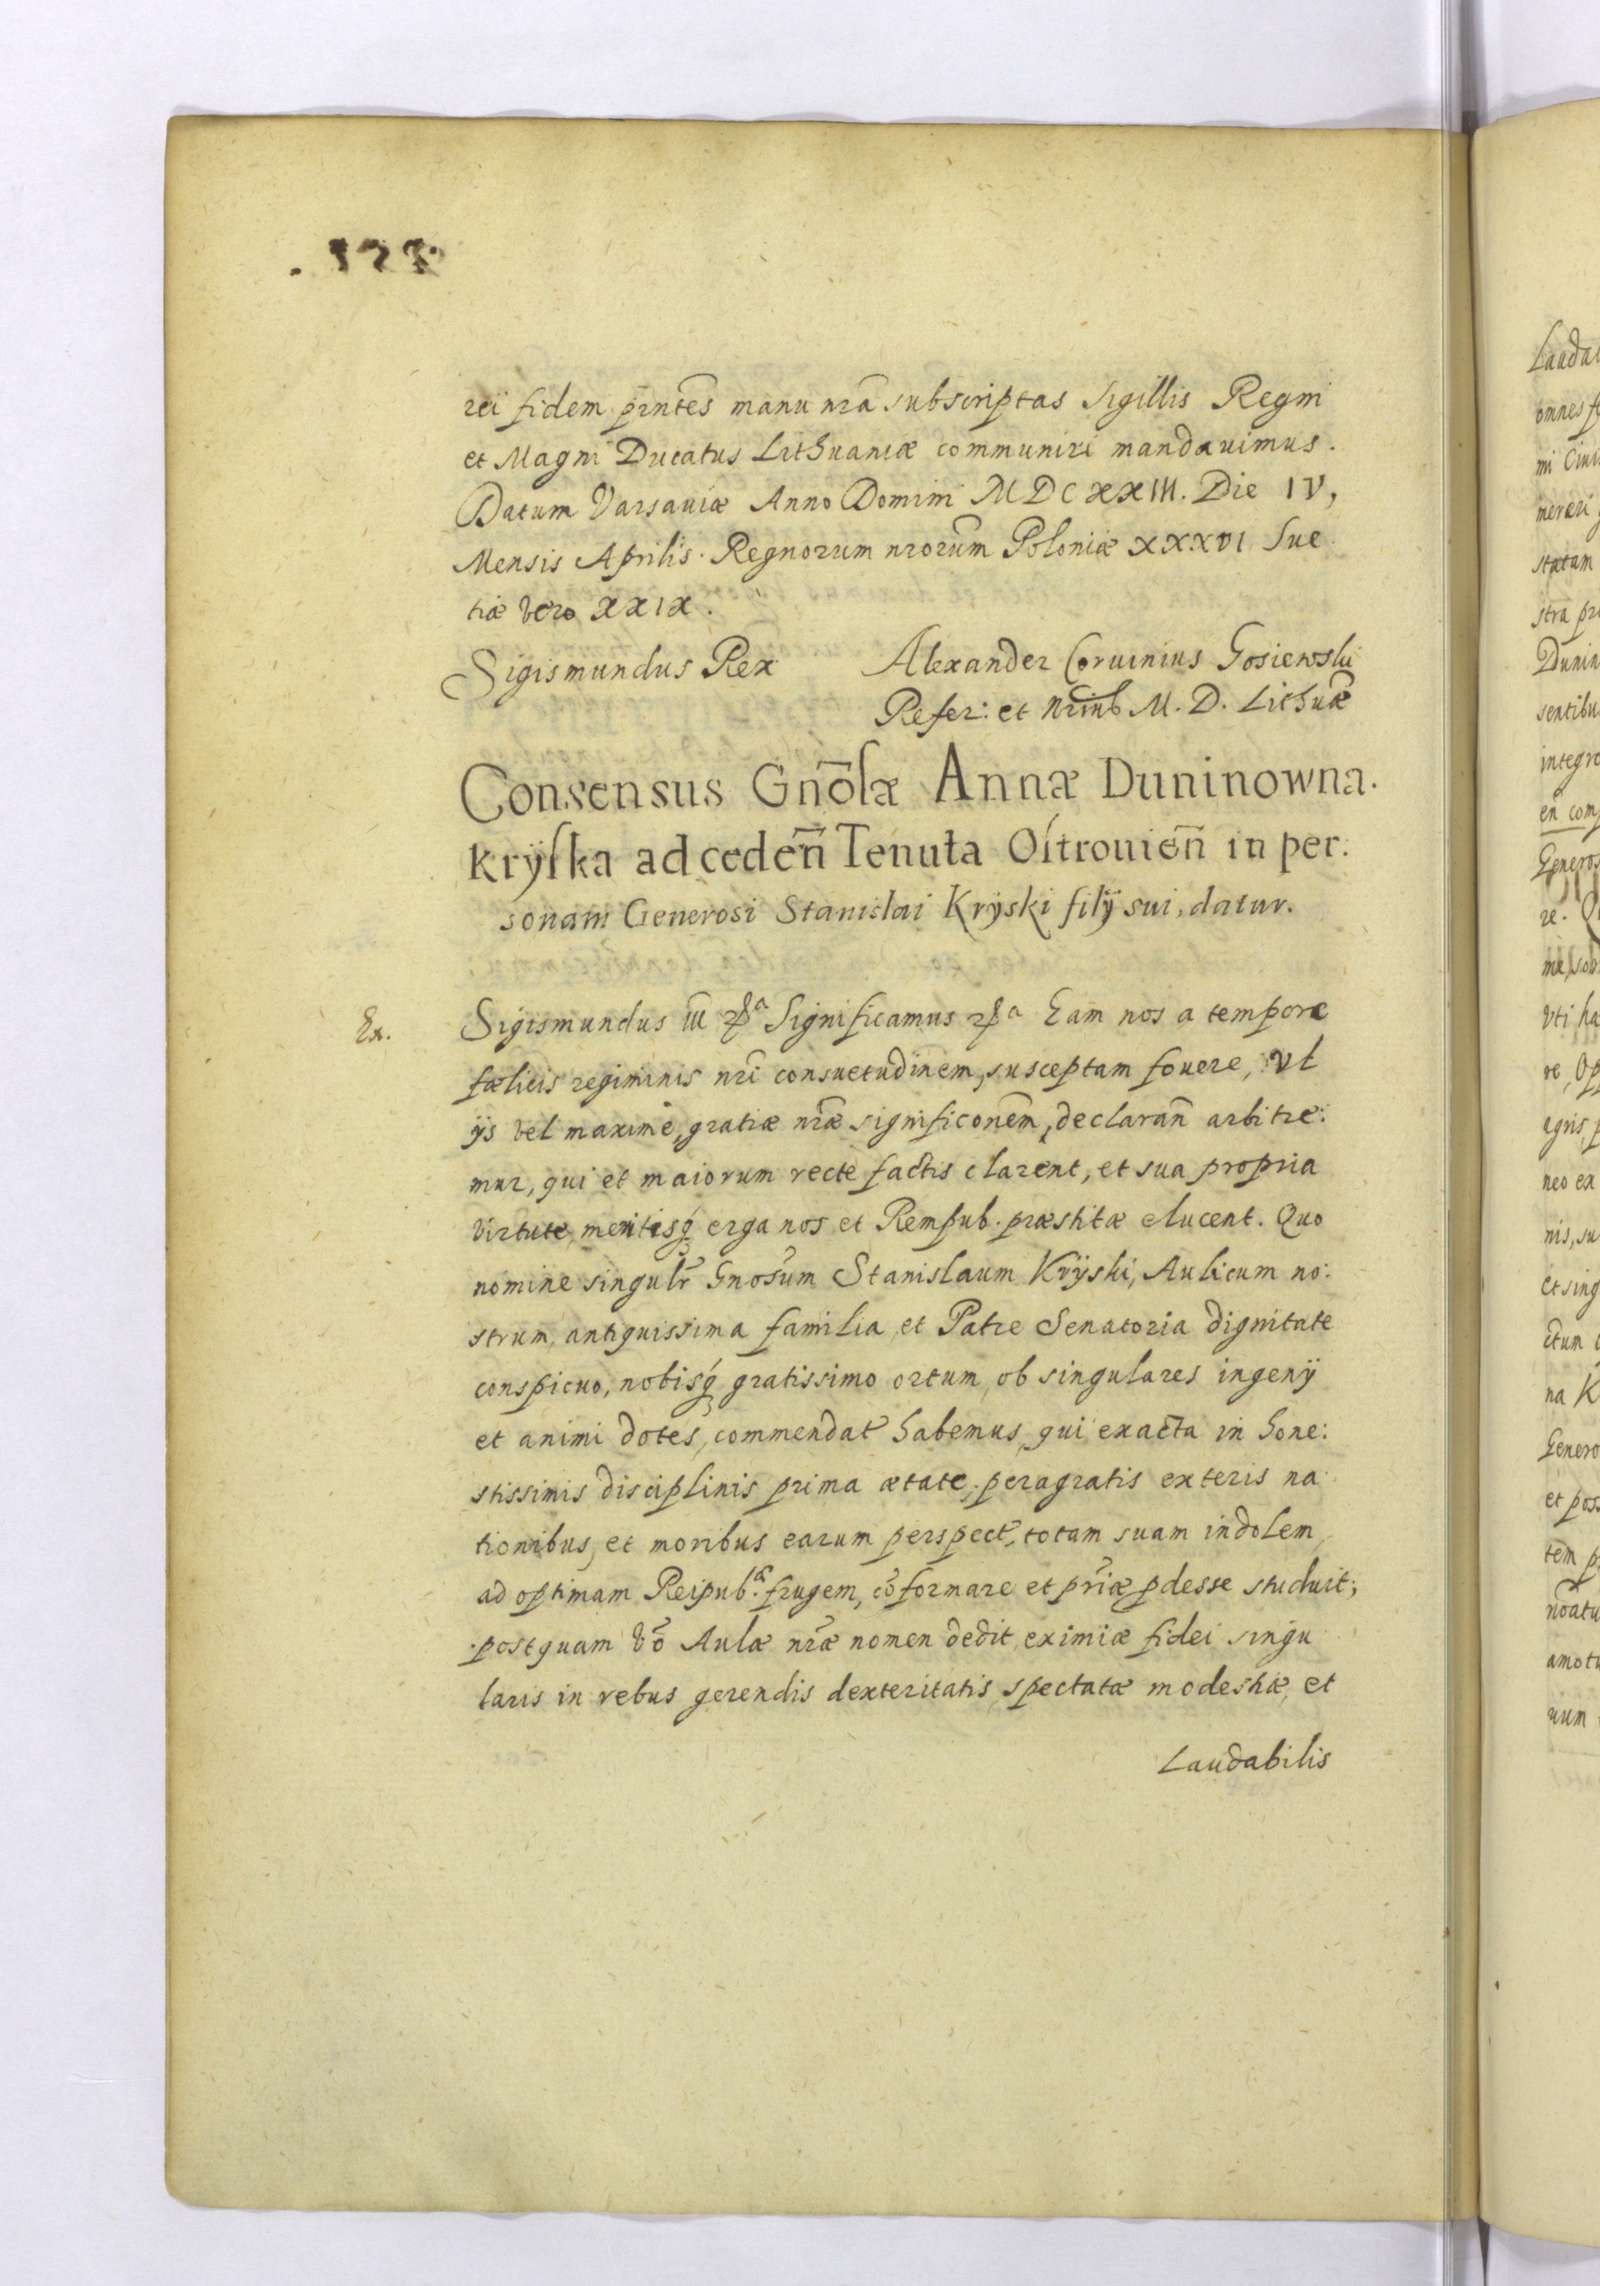 rei fidem prntes manu nra subscriptas Sigillis Regni
et Magni Ducatus Lithuaniæ communiri mandauimus.
Datum Varsauiæ Anno Domini MDCXXIII. Die IV,
Mensis Aprilis. Regnorum nrorum Poloniæ XXXVI Sue
tiæ vero XXIX.
Sigismundus Rex
Alexander Coruinius Gosiewski
Refer: et M. D. Lithuæ
Consensus Gnolæ Annæ Duninowna.
Kryska ad ceden Tenuta Ostrouien in per:
sonam Generosi Stanislai Kryski filÿ sui, datur.
Ex.
Sigismundus III Significamus Eam nos a tempore
fælicis regiminis nri consuetudinem, susceptam fouere, vt
ijs vel maxime, gratiæ nræ significonem, declaran arbitre:
mur, qui et maiorum recte factis clarent, et sua propria
virtute, meritisq erga nos et Rempub. præstitæ elucent. Quo
nomine singulr Gnosum Stanislaum Krÿski, Aulicum no:
strum, antiquissima familia, et Patre Senatoria dignitate
conspicuo, nobisq gratissimo ortum, ob singulares ingenÿ
et animi dotes, commendat habemus, qui exacta in hone:
stissimis disciplinis prima ætate, peragratis exteris na
tionibus, et moribus earum perspect, totam suam indolem,
ad optimam Reipub. frugem, coformare et priæ pdesse studuit;
postquam vo Aulæ nræ nomen dedit, eximiæ fidei singu
laris in rebus gerendis dexteritatis, spectatæ modestiæ, et
Laudabilis